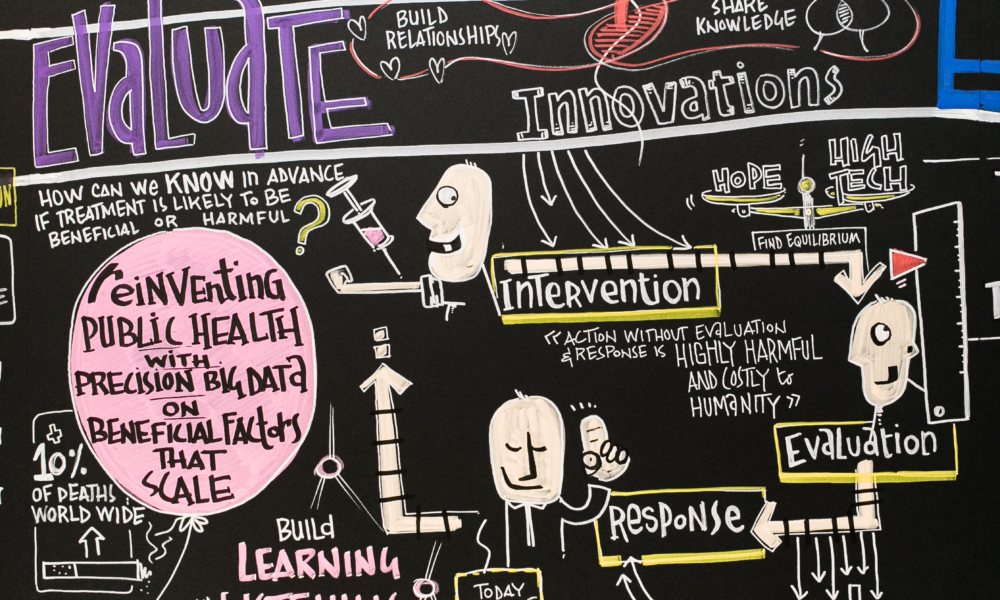 EVALUATE
BUILD
RELATIONSHIPS
SHARE
KNOWLEDGE
Innovations
HOW CAN WE KNOW IN ADVANCE
IF TREATMENT IS LIKELY TO BE
BENEFICIAL OR HARMFUL
?
HOPE
HIGH
TECH
FIND EQUILIBRIUM
INTERVENTION
reINVEnting
PUBLIC HEALTH
WITH
PRECISION BIG DATA
ON
BENEFICIAL FActorS
THAT
SCALE
"ACTION WITHOUT EVALUATION
& RESPONSE IS HIGHLY HARMFUL
AND COSTLY to
HUMANITY"
Evaluation
RESPONSE
10%
OF DEATHS
WORLD WIDE
BUILd
LEARNING
TODAY